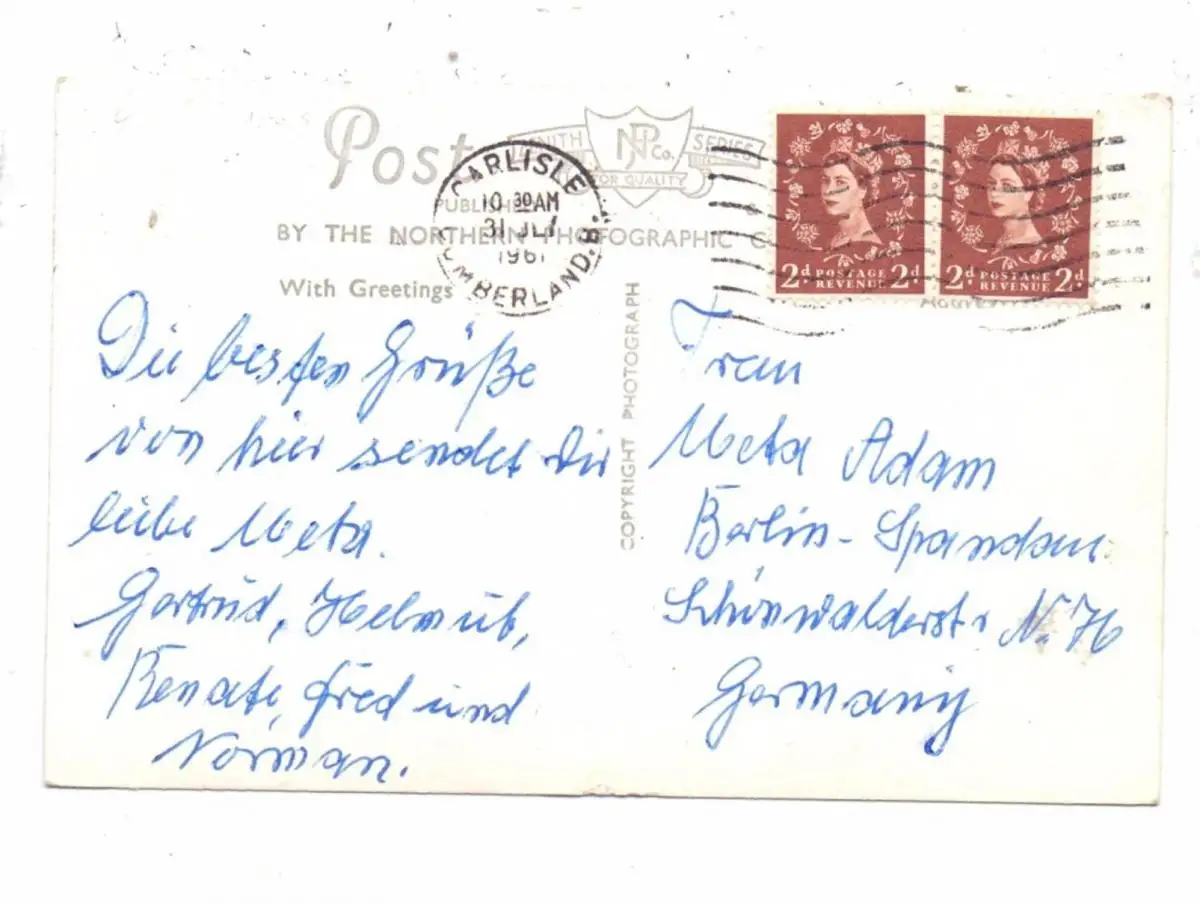 Post
ZENITH SERIES
NPCo.
FOR QUALITY
PUBLISHE
BY THE NORTHERN PHOTOGRAPHIC C
With Greetings
CARLISLE
10 30 AM
31 JLY
1961
CUMBERLAND. 8.
2d POSTAGE REVENUE 2d
2d POSTAGE REVENUE 2d
COPYRIGHT PHOTOGRAPH
Die besten Grüße
von hier sendet Dir
liebe Meta.
Gertrud, Helmut,
Renate, Fred und
Norman.
Frau
Meta Adam
Berlin-Spandau
Schönwalderstr N. 76
Germany